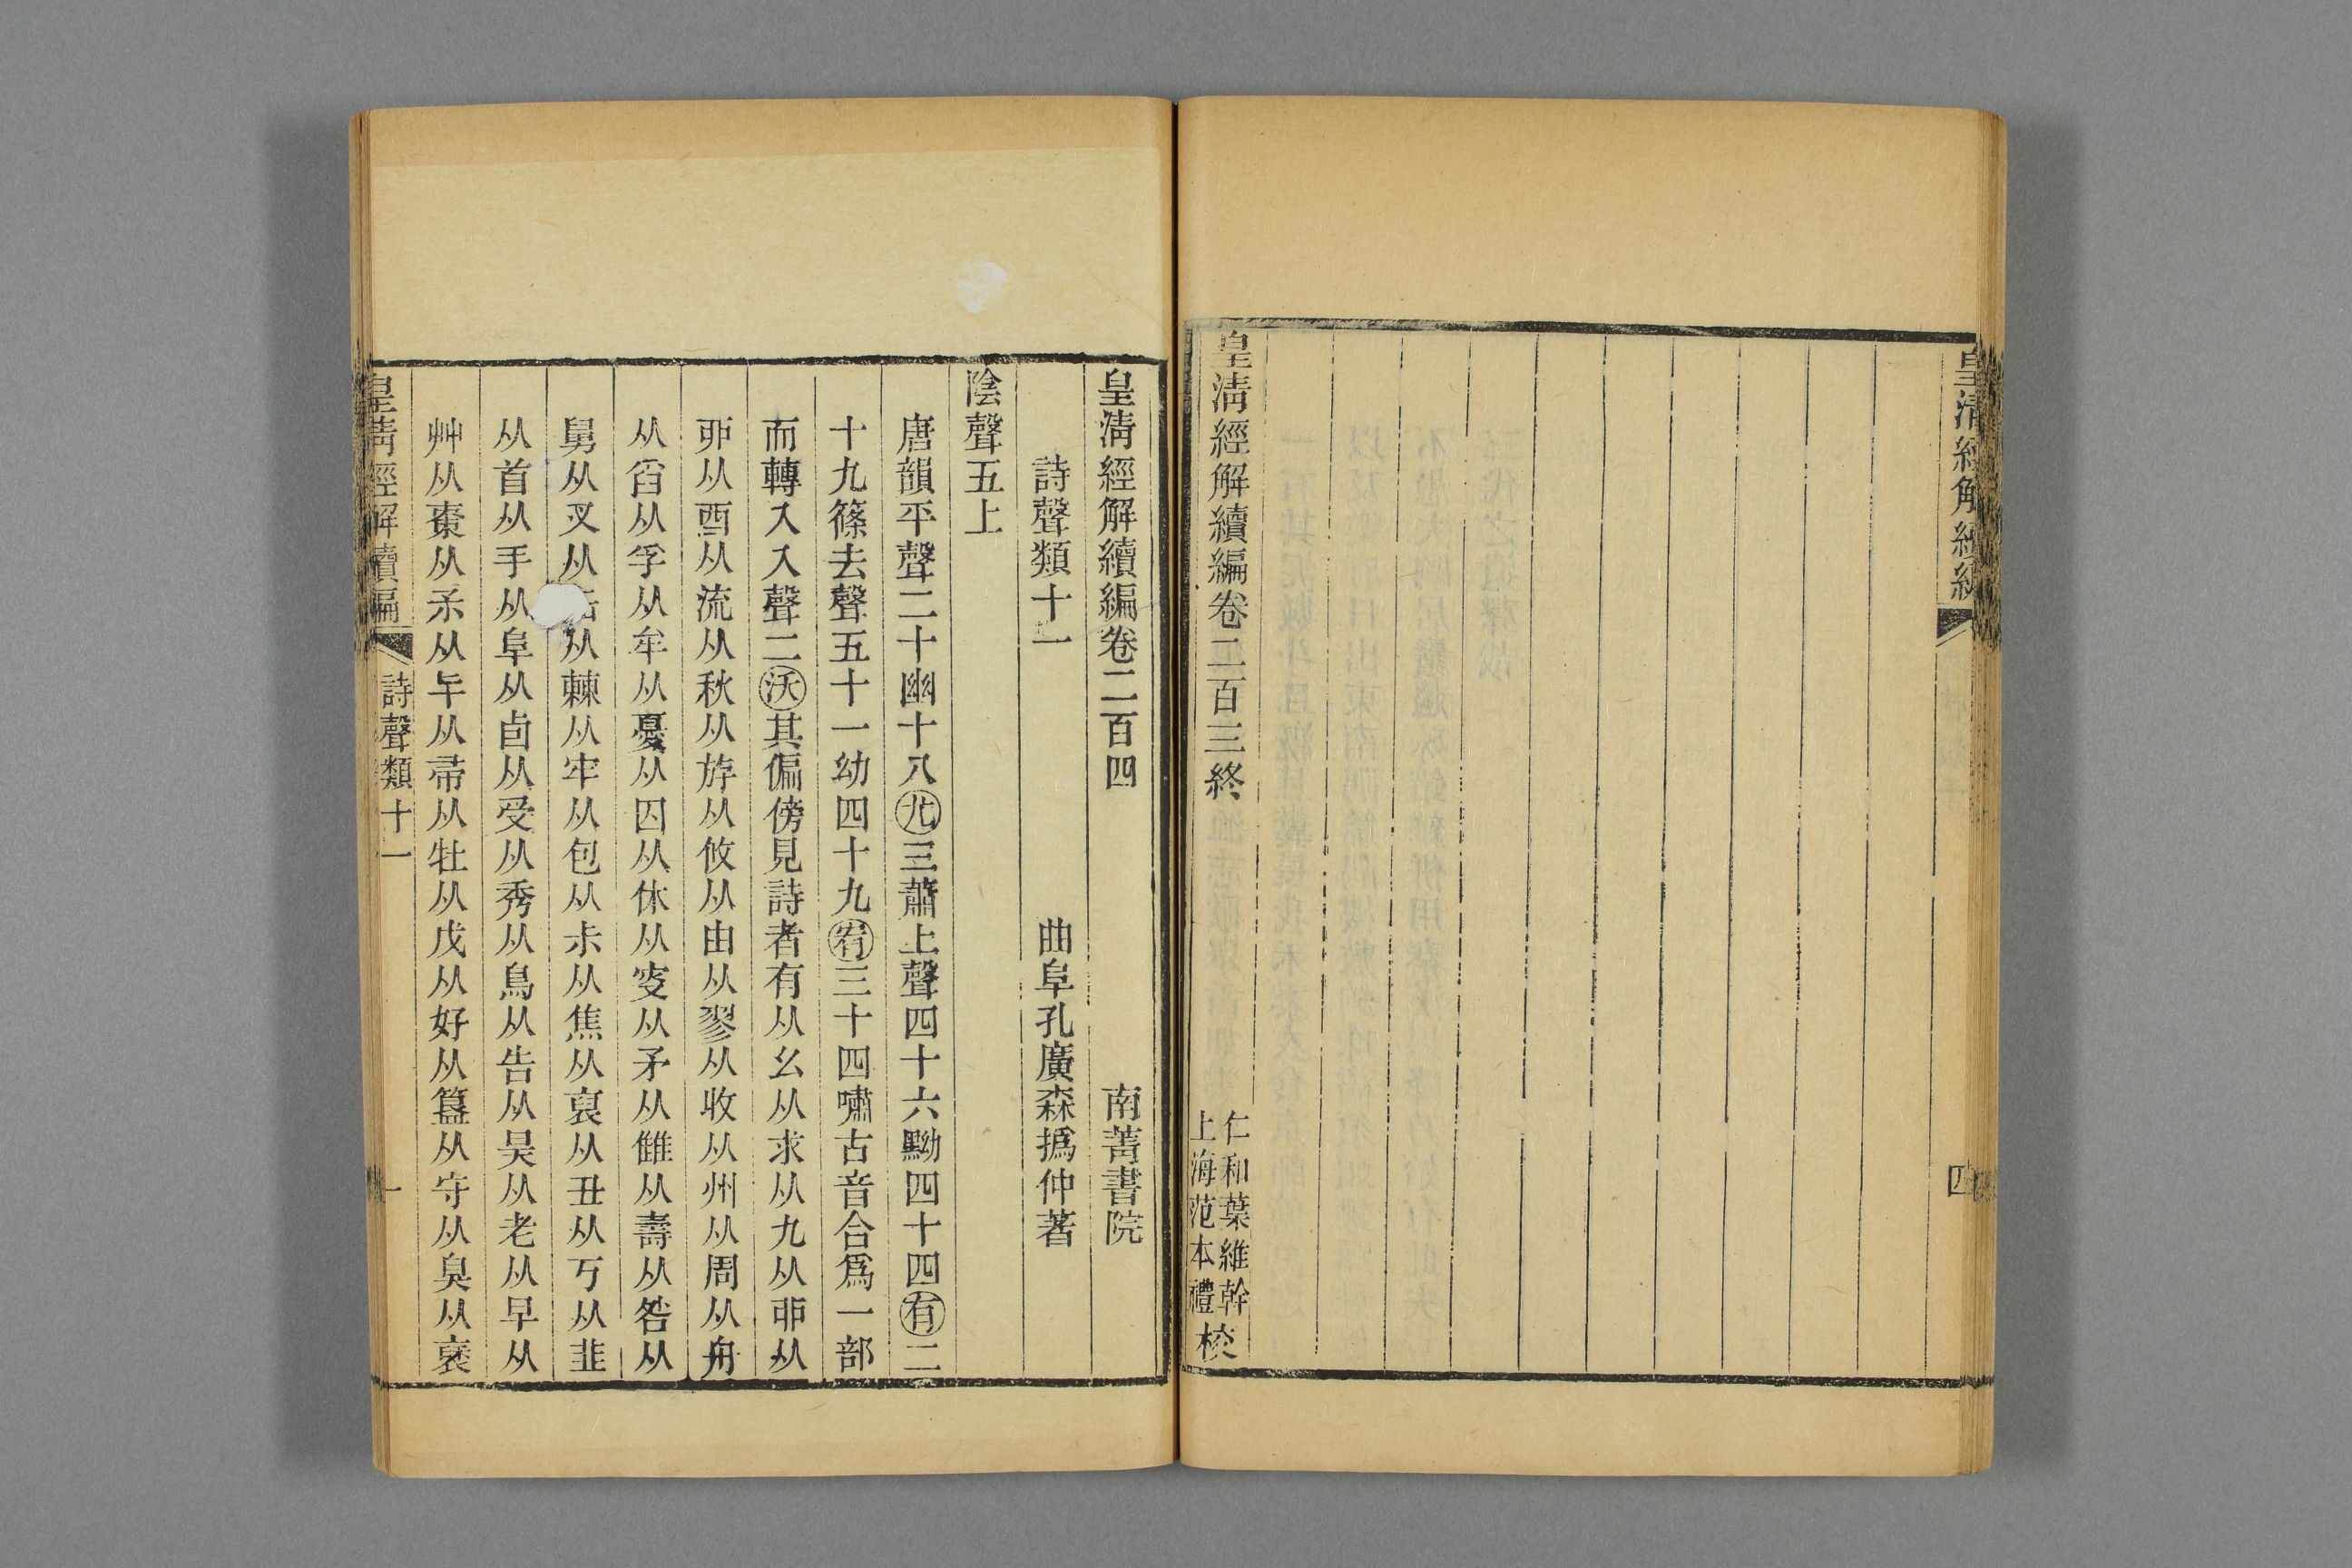 皇清經解續編
四
皇清經解續編卷二百三終
仁和葉維幹
上海范本禮
校
皇清經解續編卷二百四
南菁書院
詩聲類十一
曲阜孔廣森撝仲著
陰聲五上
唐韻平聲二十幽十八尤三蕭上聲四十六黝四十四有二
十九篠去聲五十一幼四十九宥三十四嘯古音合爲一部
而轉入入聲二沃其偏傍見詩者有从幺从求从九从丣从
丣从酉从流从秋从斿从攸从由从翏从收从州从周从舟
从舀从孚从牟从憂从囚从休从叜从矛从雔从壽从咎从
舅从叉从从𣍘从牢从包从尗从焦从裒从丑从丂从韭
从首从手从阜从卣从受从秀从鳥从告从昊从老从早从
艸从棗从𣎵从午从帚从牡从戊从好从簋从守从臭从褎
皇清經解續編
詩聲類十一
一